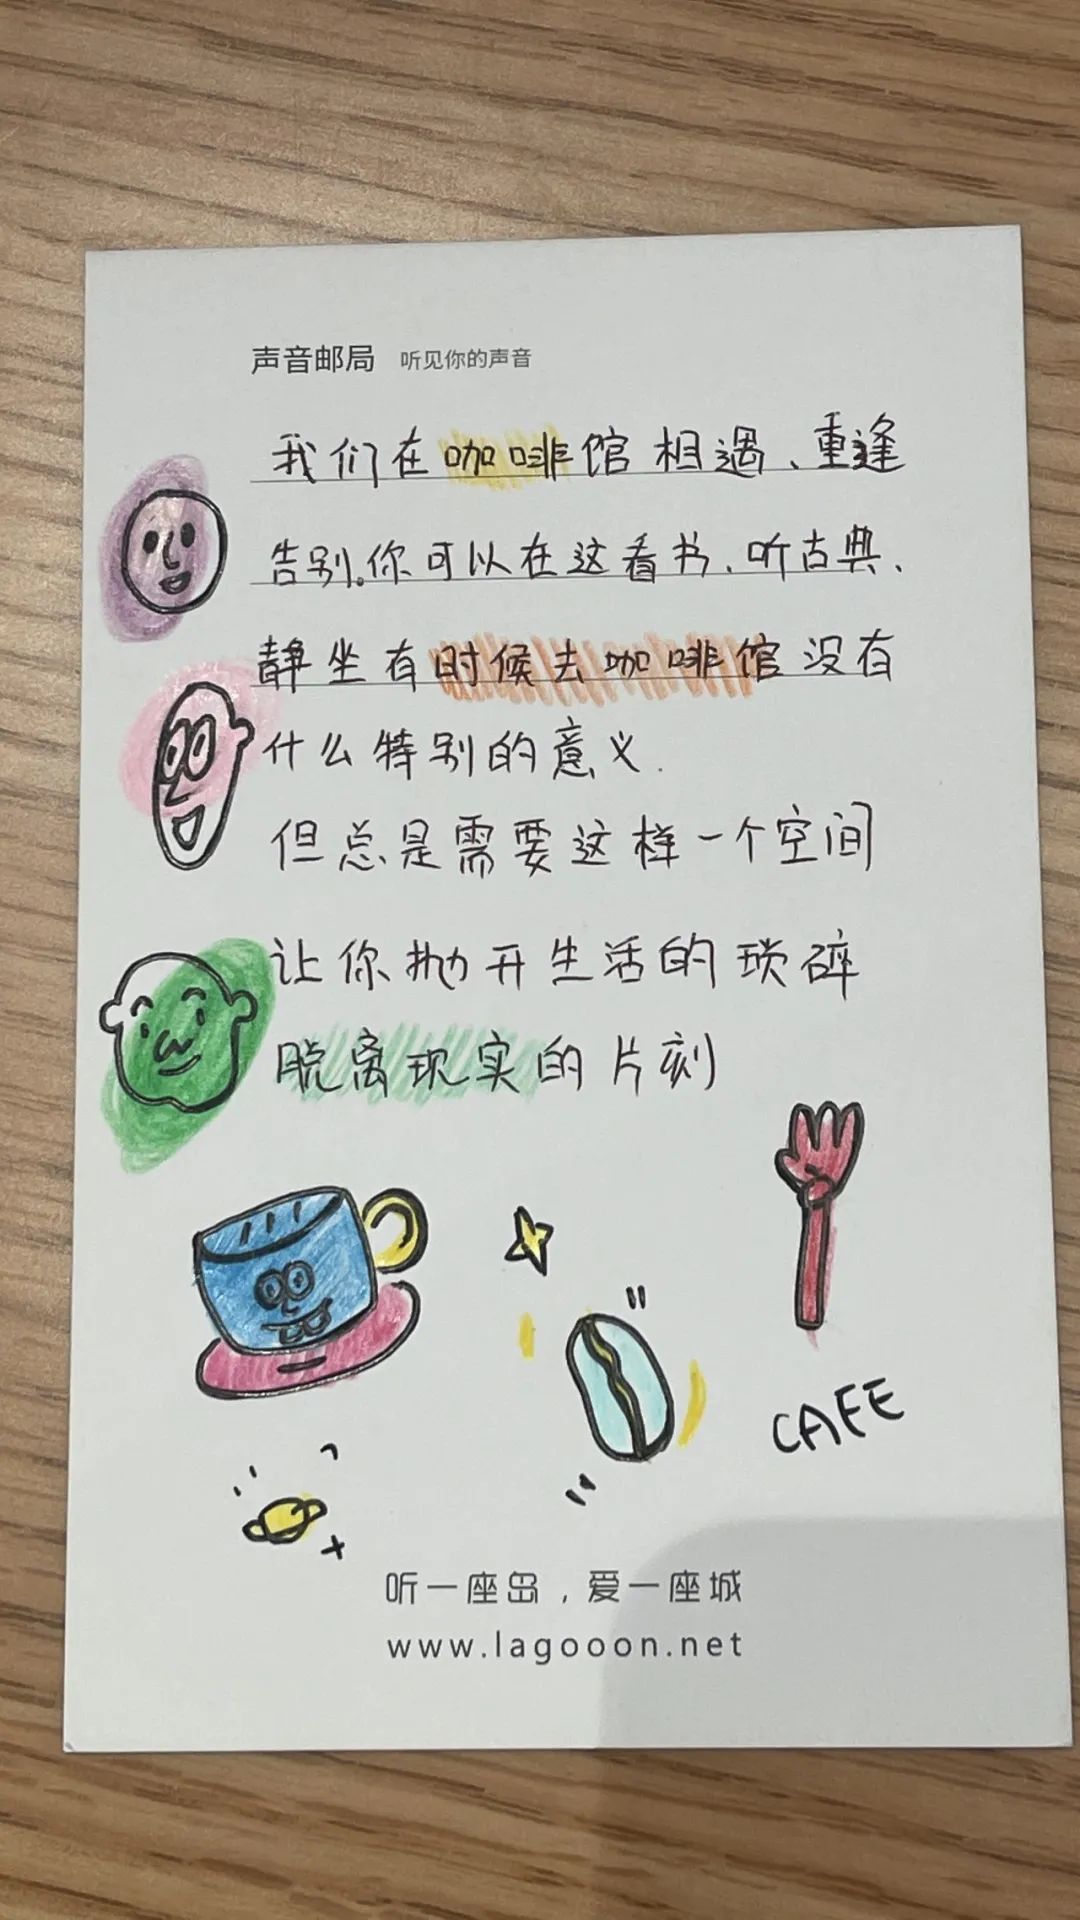 声音邮局 听见你的声音
我们在咖啡馆相遇、重逢
告别。你可以在这看书、听古典、
静坐有时候去咖啡馆没有
什么特别的意义.
但总是需要这样一个空间
让你抛开生活的琐碎
脱离现实的片刻
CAFE
听一座岛，爱一座城
www.lagooon.net